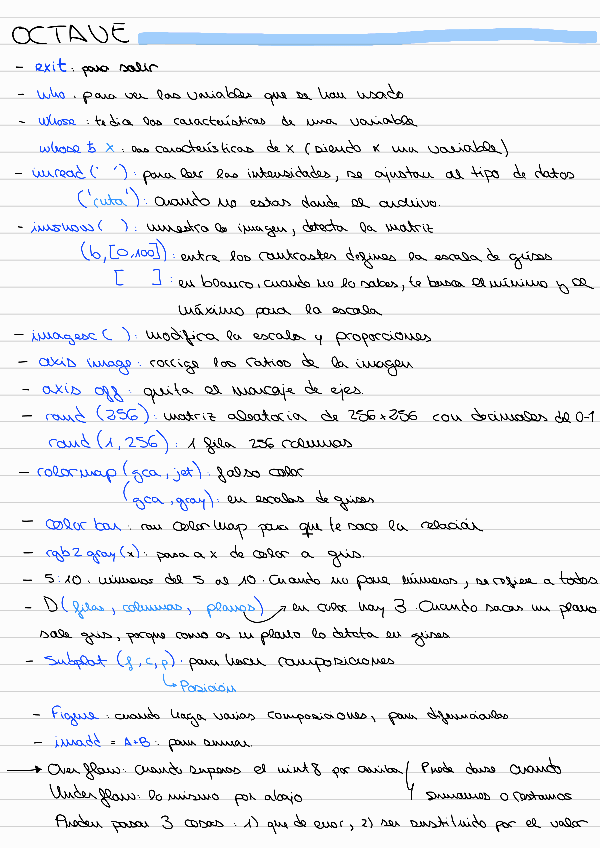 OCTAVE
- exit: para salir
- who: para ver las variables que se han usado
- whose: te dice las características de una variable
whose x: las características de x (siendo x una variable)
- imread(' '): para leer las intensidades, se ajustan al tipo de datos
('ruta'): cuando no estas donde el archivo.
- imshow( ): muestra la imagen, detecta la matriz
(b,[0,100]): entre los contrastes defines la escala de grises
[ ]: en blanco, cuando no lo sabes, te busca el mínimo y el
máximo para la escala
- imagesc( ): modifica la escala y proporciones
- axis image: corrige los ratios de la imagen
- axis off: quita el marcaje de ejes.
- rand (256): matriz aleatoria de 256x256 con decimales del 0-1
rand (1,256): 1 fila 256 columnas
- colormap (gca, jet): falso color
(gca, gray): en escalas de grises
- color bar: con color map para que te sace la relación
- rgb2gray(x): pasa a x de color a gris.
- 5:10: números del 5 al 10. Cuando no pone números, se refiere a todos
- D(filas, columnas, planos) → en color hay 3. Cuando sacas un plano
sale gris, porque como es un plano lo detecta en grises
- Subplot (f,c,p): para hacer composiciones
↳ Posición
- Figure: cuando haga varias composiciones, para diferenciarlas
- imadd = A+B: para sumar.
→ Overflow: cuando superas el uint8 por arriba / Puede darse cuando
Underflow: lo mismo por abajo / sumamos o restamos
Pueden pasar 3 cosas: 1) que de error, 2) ser sustituido por el valor